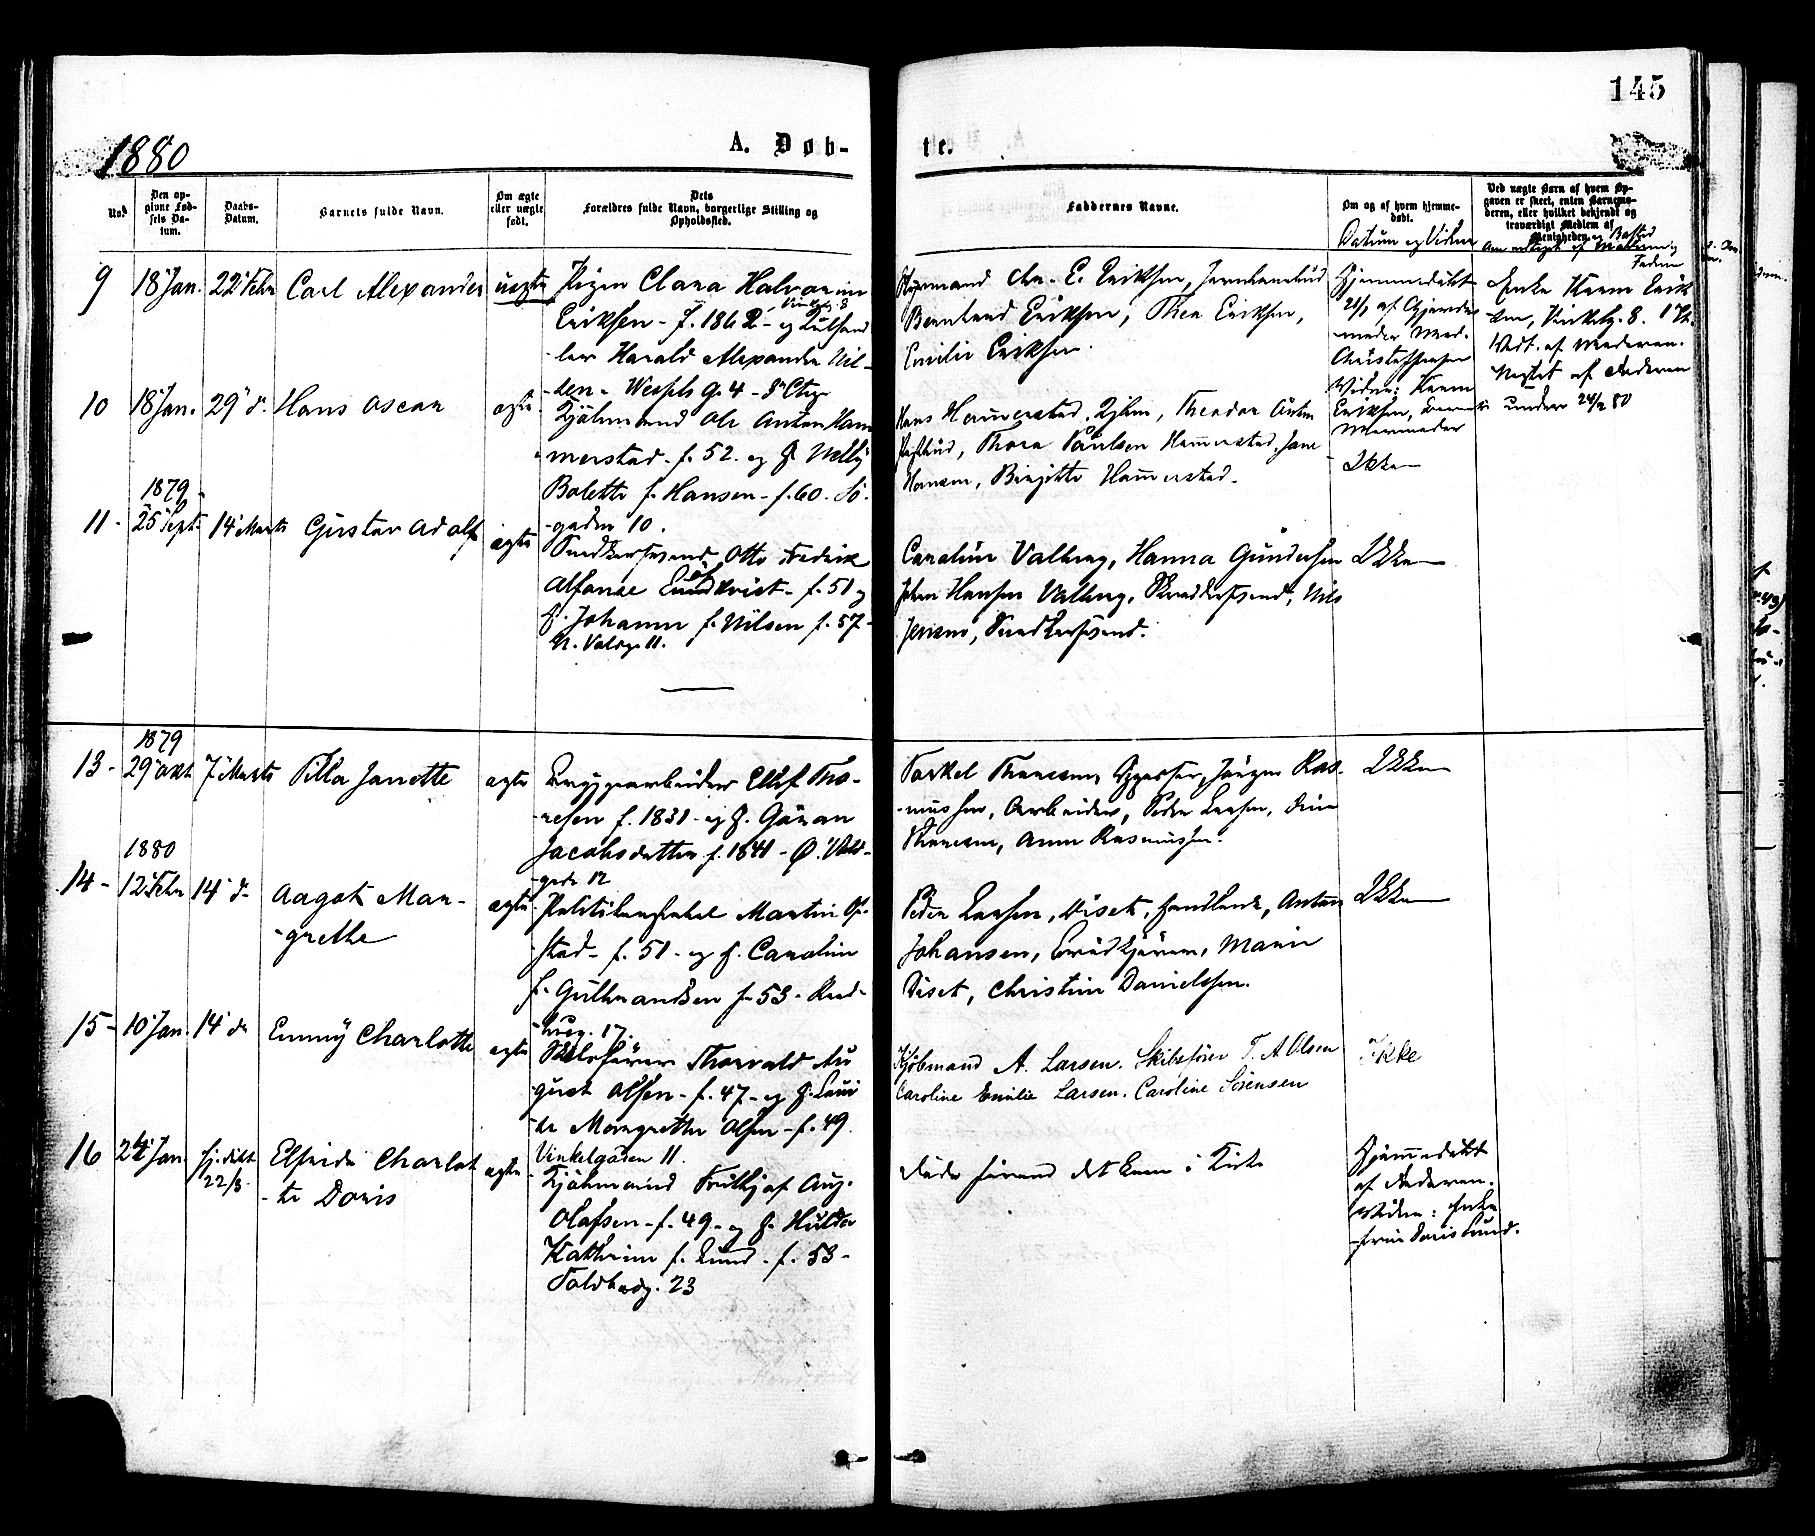 145
1880
A. Døb-
te.
No.
Den op-
givne Fød-
sels Da-
tum.
Daabs-
Datum.
Barnets fulde Navn.
Om ægte
eller uægte
født.
Dets
Forældres fulde Navn, borgerlige Stilling og
Opholdssted.
Faddernes Navne.
Om og af hvem hjemme-
døbt.
Datum og Vidner
Ved uægte Børn af hvem Op-
gaven er skeet, enten Barnemo-
deren, eller hvilket bekjendt og
troværdigt Medlem af
Menigheden
9
18 Jan.
22 Febr
Carl Alexander
uægte
Pigen Clara Halvorine
Eriksen - f. 1862 - og
Harald Alexander Nil-
sen - Wessels g. 4 -
Chr. E. Eriksen,
Berntine Eriksen, Thea Eriksen,
Emilie Eriksen.
Hjemmedøbt
21/1 af Gjorde-
moder Mad.
Christophersen
Vidner: Karen
Eriksen,
Mormoder
Enke Karen Erik-
sen, Vinkelg. 8.
Vedt. af Moderen.
Negtet af Faderen
under 24/2 80
10
18 Jan.
29 d.
Hans Oscar
ægte
Kjøbmand Ole Anton Ham-
merstad - f. 52. og H. Nelly
Bolette f. Hansen - f. 60. Sø-
gaden 10.
Hans Hammerstad, Kjbm., Theodor Anton
Thora Paulsen Hammerstad, Jane
Hansen, Birgitte Hammerstad.
Ikke
11 -
1879 -
25 Sept.
14 Marts
Gustav Adolf
ægte
Snedkersvend Otto Fredrik
Alfonse Lundkvist - f. 51 og
H. Johanne f. Nilsen f. 57 -
N. Valdg. 11.
Caroline Valberg, Hanna Gundersen
Johan Hansen Valberg, Skræddersvend, Nils
Jensen, Snedkersvend.
Ikke
13 -
1879
29 Okt
7 Marts
Tilla Janette
ægte
Bryggearbeider Ellef Tho-
resen f. 1831 - og H. Gøran
Jacobsdatter f. 1841 - Ø. Vold-
gade 12
Torkel Thoresen, Jørgen Ras-
mussen, Arbeider, Peder Larsen,
Thoresen, Anne Rasmussen.
Ikke
14 -
1880
12 Febr
14 d.
Aagot Mar-
-grethe
ægte
Politikonstabel Martin Op-
stad - f. 51 - og H. Caroline
f. Gulbrandsen f. 53 - Raad-
husg. 17.
Peder Larsen, Viset, Anton
Johansen, Marie
Viset, Christine Danielsen.
Ikke
15 -
10 Jan.
14 d
Emmy Charlotte
ægte
Skibsfører Thorvald Au-
gust Olsen - f. 47 - og H. Loui-
se Margrethe Olsen - f. 49.
Vinkelgaden 11.
Kjøbmand A. Larsen. Skibsfører T. A Olsen
Caroline Emilie Larsen. Caroline Sørensen
Ikke
16
24 Jan.
hj. døbt
22/3.
Elfrida Charlot-
-te Doris
ægte
Kjøbmand Fridthjof Aug.
Olafsen - f. 49 - og H. Hulda
Kathrine f. Lund - f. 53 -
Toldbodg. 23
Døde førend det kom i Kirke
Hjemmedøbt
af Faderen.
Vidne: Enke-
frue Doris Lund.